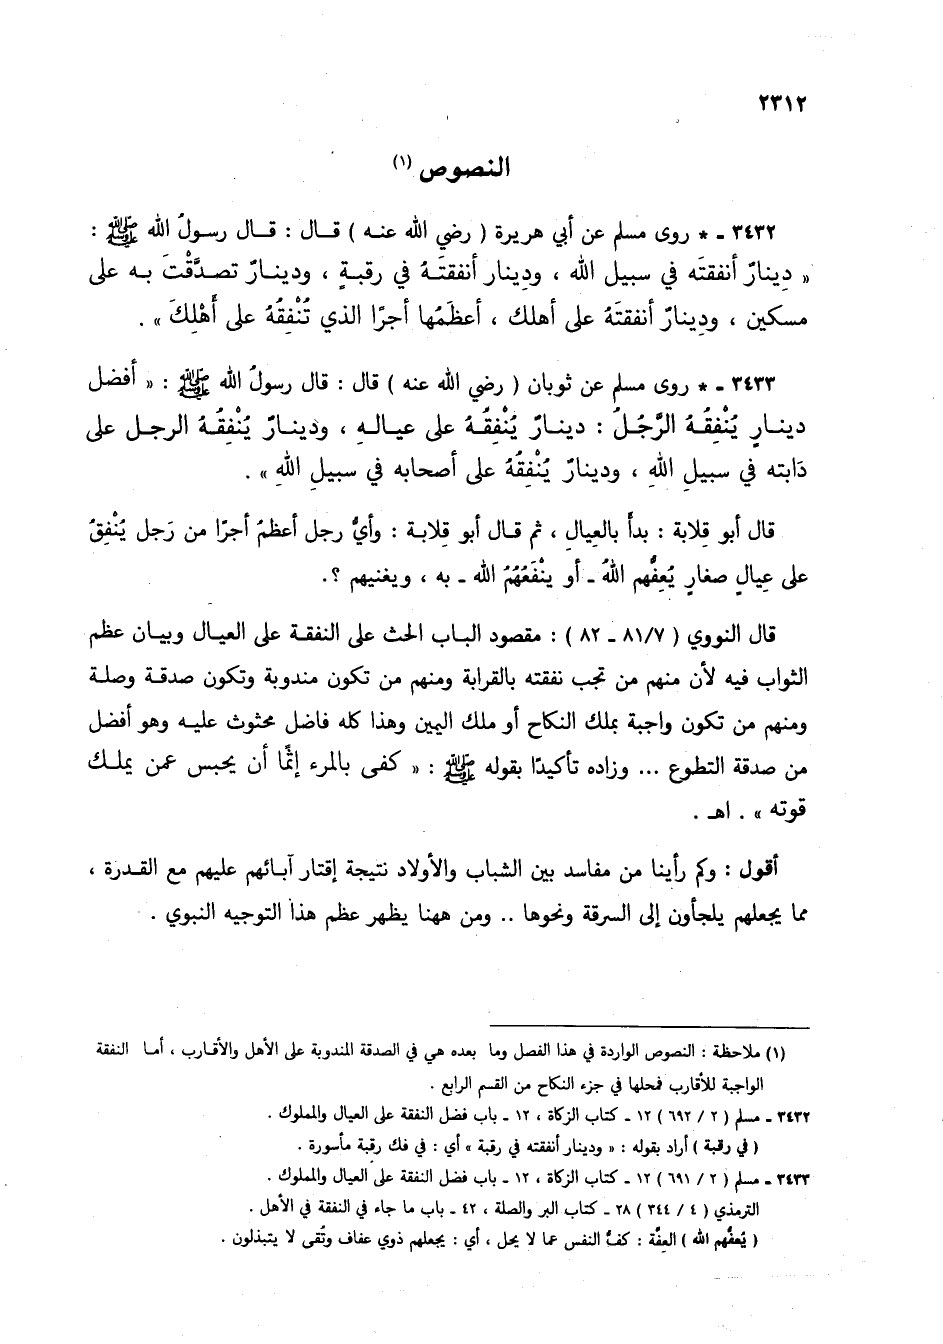 ٢٣١٢
النصوص (١)
٣٤٣٢ ـ * روى مسلم عن أبي هريرة ( رضي الله عنه ) قال : قال رسولُ الله ﷺ :
« دِينارٌ أنفقتَه في سبيل الله ، ودِينار أنفقتَهُ في رقبةٍ ، ودينارٌ تصدَّقْتَ به على
مسكين ، ودِينارٌ أنفقتَهُ على أهلك ، أعظَمُها أجرًا الذي تُنْفِقُهُ على أَهْلِكَ » .
٣٤٣٣ ـ * روى مسلم عن ثوبان ( رضي الله عنه ) قال : قال رسولُ الله ﷺ : « أفضل
دينارٍ يُنْفِقُهُ الرَّجُلُ : دينارٌ يُنْفِقُهُ على عيالهِ ، ودينارٌ يُنْفِقُهُ الرجل على
دَابته في سبيلِ اللهِ ، ودينارٌ يُنْفِقُهُ على أصحابه في سبيلِ اللهِ » .
قال أبو قلابة : بدأَ بالعيالِ ، ثم قال أبو قلابة : وأيُّ رجل أعظمُ أجرًا من رَجل يُنْفِقُ
على عِيالٍ صغارٍ يُعِفُّهم اللهُ ـ أو ينْفَعُهُمُ الله ـ به ، ويغنيهم ؟.
قال النووي ( ٨١/٧ ـ ٨٢ ) : مقصود الباب الحث على النفقة على العيال وبيان عظم
الثواب فيه لأن منهم من تجب نفقته بالقرابة ومنهم من تكون مندوبة وتكون صدقة وصلة
ومنهم من تكون واجبة بملك النكاح أو ملك اليمين وهذا كله فاضل محثوث عليه وهو أفضل
من صدقة التطوع ... وزاده تأكيدًا بقوله ﷺ : « كفى بالمرء إثمًا أن يحبس عمن يملك
قوته » . اهـ .
أقول : وكم رأينا من مفاسد بين الشباب والأولاد نتيجة إقتار آبائهم عليهم مع القدرة ،
مما يجعلهم يلجأون إلى السرقة ونحوها .. ومن ههنا يظهر عظم هذا التوجيه النبوي .
(١) ملاحظة : النصوص الواردة في هذا الفصل وما بعده هي في الصدقة المندوبة على الأهل والأقارب ، أما النفقة
الواجبة للأقارب فمحلها في جزء النكاح من القسم الرابع .
٣٤٣٢ ـ مسلم ( ٢ / ٦٩٢ ) ١٢ ـ كتاب الزكاة ، ١٢ ـ باب فضل النفقة على العيال والمملوك .
( في رقبة ) أراد بقوله : « ودينار أنفقته في رقبة » أي : في فك رقبة مأسورة .
٣٤٣٣ ـ مسلم ( ٢ / ٦٩١ ) ١٢ ـ كتاب الزكاة ، ١٢ ـ باب فضل النفقة على العيال والمملوك .
الترمذي ( ٤ / ٣٤٤ ) ٢٨ ـ كتاب البر والصلة ، ٤٢ ـ باب ما جاء في النفقة في الأهل .
( يُعفُّهم الله ) العِفَّة : كفُّ النفس عما لا يحل ، أي : يجعلهم ذوي عفاف وتُقى لا يتبذلون .